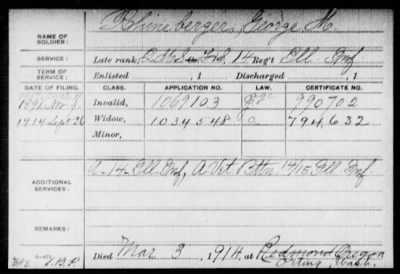 Rhineberger, George M.
NAME OF SOLDIER:
SERVICE: Late rank, 14 Reg't Ill Inf
TERM OF SERVICE: Enlisted , 1 Discharged , 1
DATE OF FILING. CLASS. APPLICATION NO. LAW. CERTIFICATE NO.
1891 Nov 9. Invalid, 1069103 990702
1914 Sept 26 Widow, 1034548 794632
Minor,
ADDITIONAL SERVICES: 14 Ill Inf, A Vet Battn 14/15 Ill Inf
REMARKS:
Died Mar 3, 1914, at Redmond Oregon
Orting, Wash.